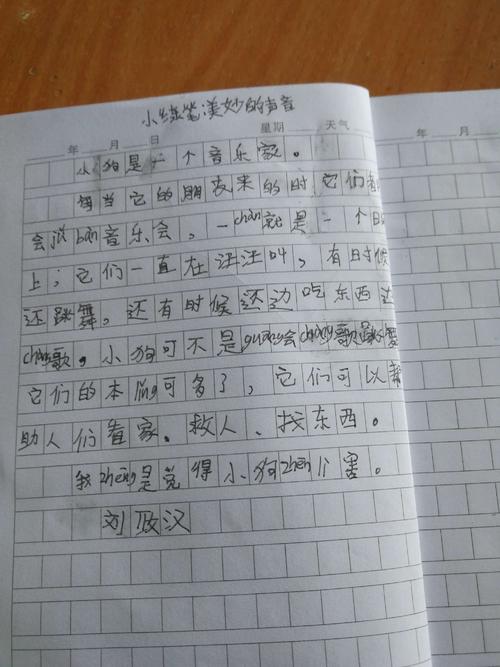 小练笔美妙的声音
年 月 日 星期 天气
年 月 日
小狗是一个音乐家。
每当它的朋友来的时它们都
会bàn音乐会,一chàng就是一个日
上;它们一直在汪汪叫,有时候
还跳舞。还有时候还边吃东西边
chàng歌。小狗可不是guāng会chàng歌跳舞
它们的本lǐng可多了,它们可以帮
助人们看家、救人、找东西。
我zhēng是觉得小狗zhēn厉害。
刘
汉